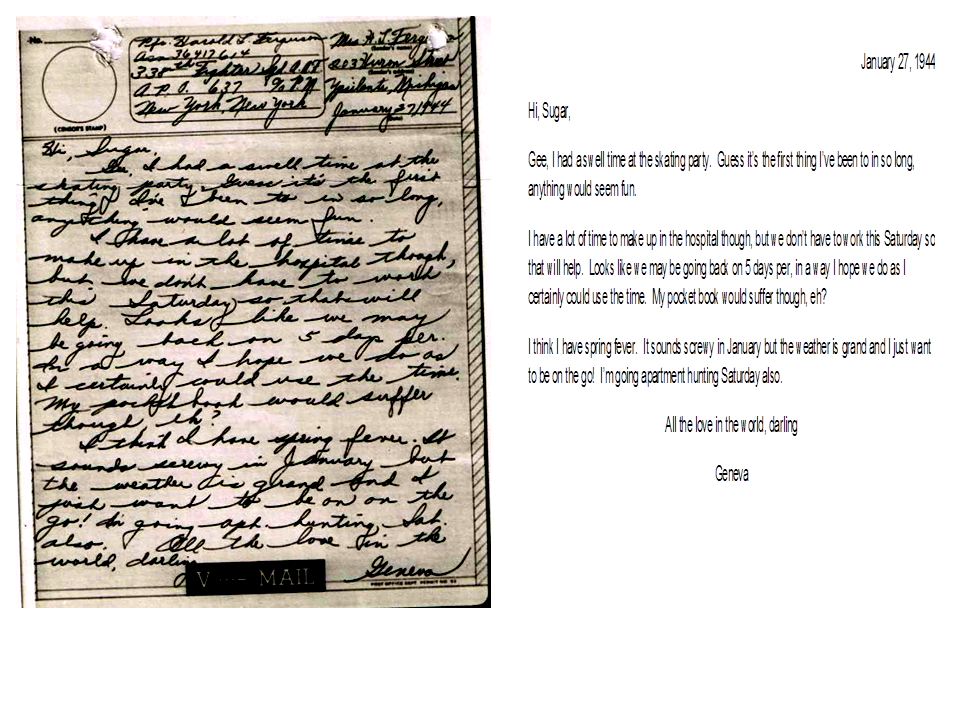 No.
(CENSOR'S STAMP)
Pfc. Harold L. Ferguson
Asn 36417614
338th Fighter Sqd. A.P.O.
A.P.O. 637 % P.M.
New York, New York
Mrs H. L.
(Sender's name)
203 Huron Street
(Sender's address)
Ypsilanti, Michigan
January 27, 1944
(Date)
Hi, Sugar,
Gee, I had a swell time at the
skating party. Guess it's the first
thing I've been to in so long,
anything would seem fun.
I have a lot of time to
make up in the hospital though,
but we don't have to work
this Saturday so that will
help. Looks like we may
be going back on 5 days per.
In a way I hope we do as
I certainly could use the time.
My pocket book would suffer
though, eh?
I think I have spring fever. It
sounds screwy in January but
the weather is grand and I
just want to be on on the
go! I'm going apt. hunting Sat.
also. All the love in the
world, darling
Geneva
V···— MAIL
POST OFFICE DEPT. PERMIT NO.
January 27, 1944
Hi, Sugar,
Gee, I had a swell time at the skating party. Guess it's the first thing I've been to in so long,
anything would seem fun.
I have a lot of time to make up in the hospital though, but we don't have to work this Saturday so
that will help. Looks like we may be going back on 5 days per, in a way I hope we do as I
certainly could use the time. My pocket book would suffer though, eh?
I think I have spring fever. It sounds screwy in January but the weather is grand and I just want
to be on the go! I'm going apartment hunting Saturday also.
All the love in the world, darling
Geneva